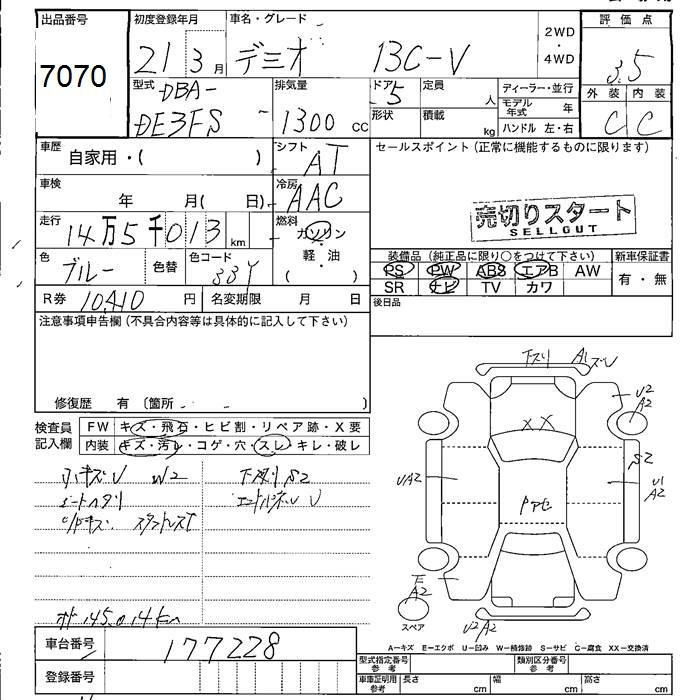 出品番号
7070
初度登録年月
21 3月
車名・グレード
デミオ 13C-V
2WD
・
4WD
評価点
3.5
型式
DBA-
DE3FS
排気量
1300 cc
ドア
5
形状
定員
人
積載
kg
ディーラー・並行
モデル年式 年
ハンドル 左・右
外装 内装
C C
車歴
自家用・( )
シフト
AT
セールスポイント (正常に機能するものに限ります)
売切りスタート
SELLOUT
車検
年 月( 日)
冷房
AAC
走行
14万5千013 km
燃料
ガソリン
・
軽・油
( )
色
ブルー
色替
色コード
33Y
装備品 (純正品に限り○をつけて下さい)
PS PW ABS エアB AW
SR ナビ TV カワ
新車保証書
有・無
R券 10410 円
名変期限 月 日
後日品
注意事項申告欄 (不具合内容等は具体的に記入して下さい)
修復歴 有 (箇所 )
検査員
記入欄
FW キズ・飛石・ヒビ割・リペア跡・X要
内装 キズ・汚レ・コゲ・穴・スレ・キレ・破レ
小キズU W2
シートヘタリ
下廻りS2
エンドパネルU
下スリ A1 ズU
U2
A2
XX
S2
UA2
U1
A2
Pアセ
E
A2
スペア
U2 A2
A-キズ E-エクボ U-凹み W-補修跡 S-サビ C-腐食 XX-交換済
車台番号
177228
登録番号
型式指定番号
参考
類別区分番号
参考
車庫証明用
参考
長さ cm
幅 cm
高さ cm